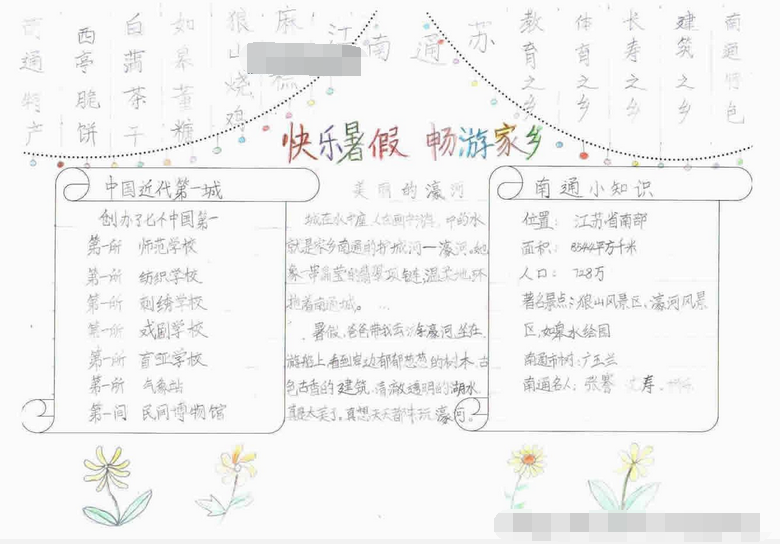 南通特产
西亭脆饼
白蒲茶干
如皋董糖
狼山烧鸡
麻
江
南通
苏
教育之乡
体育之乡
长寿之乡
建筑之乡
南通特色
快乐暑假 畅游家乡
中国近代第一城
创办了七个中国第一
第一所 师范学校
第一所 纺织学校
第一所 刺绣学校
第一所 戏剧学校
第一所 盲亚学校
第一所 气象站
第一间 民间博物馆
美丽的濠河
城在水中座,人在画中游,中的水
就是家乡南通的护城河一濠河。她
象一串晶莹的翡翠项链,温柔地环
抱着南通城。
暑假,爸爸带我去游濠河,坐在
游船上,看到岸边郁郁葱葱的树木、古
色古香的建筑、清澈透明的湖水
真是太美了,真想天天都来玩濠河。
南通小知识
位置:江苏省南部
面积:8544平方千米
人口:728万
著名景点:狼山风景区,濠河风景
区,如皋水绘园
南通市树:广玉兰
南通名人:张謇